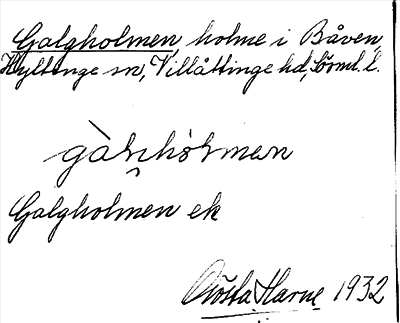 Galgholmen, holme i Båven,
Hyltinge sn, Villåttinge hd, Sörml. l.
Galgholmen ek
Gösta Harne 1932